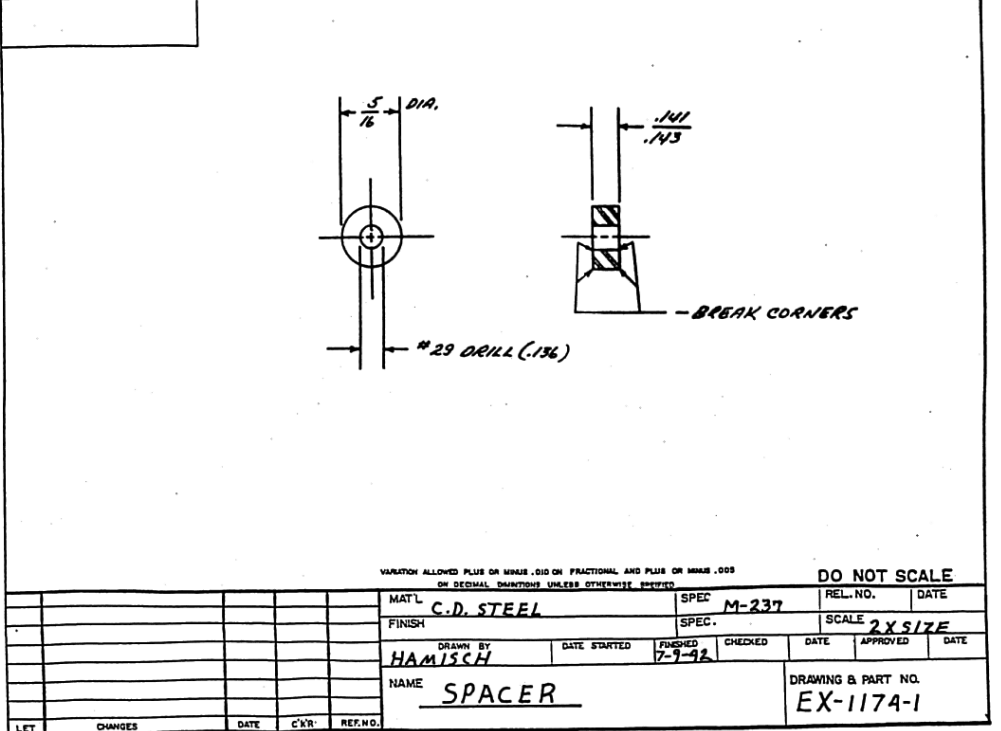 5/16 DIA.
.141
.143
BREAK CORNERS
#29 DRILL (.136)
VARIATION ALLOWED PLUS OR MINUS .010 ON FRACTIONAL AND PLUS OR MINUS .005
ON DECIMAL UNLESS OTHERWISE SPECIFIED
DO NOT SCALE
MAT'L C.D. STEEL SPEC M-237 REL. NO. DATE
FINISH SPEC. SCALE 2 X SIZE
DRAWN BY DATE STARTED FINISHED CHECKED DATE APPROVED DATE
HAMISCH 7-9-42
NAME SPACER DRAWING & PART NO.
EX-1174-1
LET CHANGES DATE C'K'R. REF. NO.